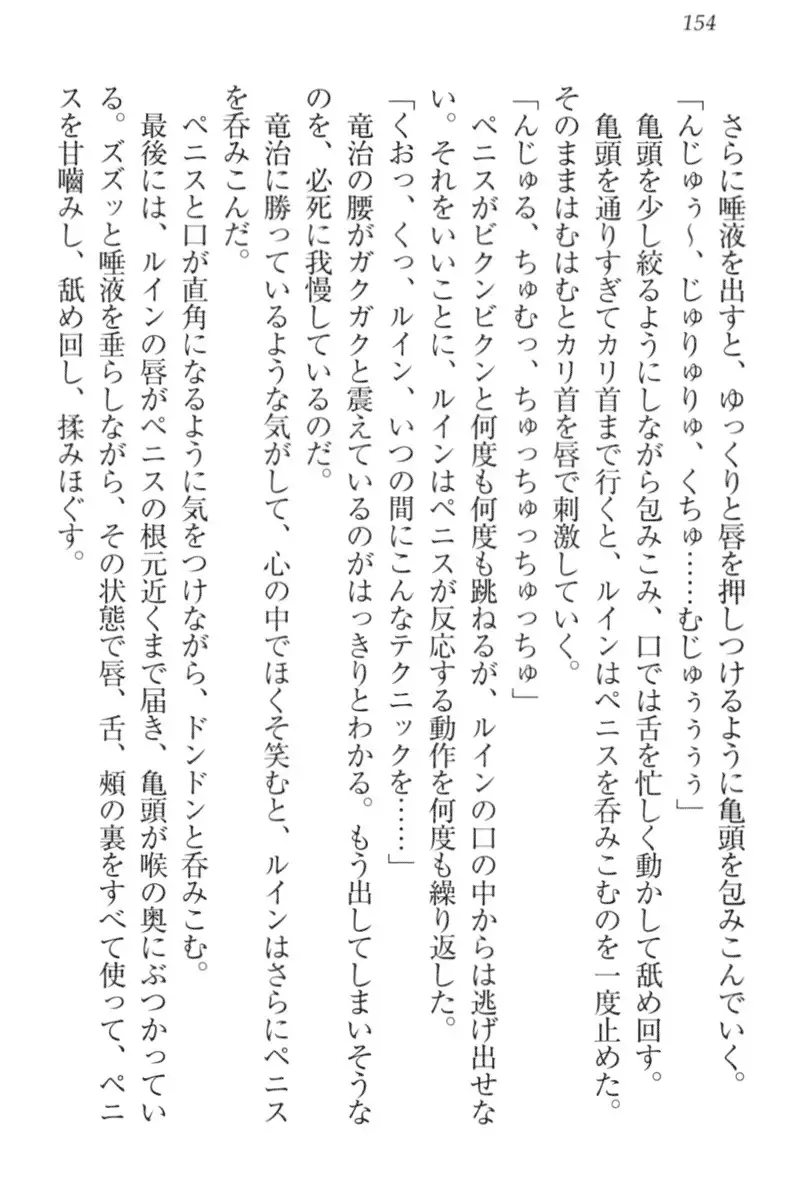 154
さらに唾液を出すと、ゆっくりと唇を押しつけるように亀頭を包みこんでいく。
「んじゅぅ～、じゅりゅりゅ、くちゅ……むじゅぅぅぅ」
亀頭を少し絞るようにしながら包みこみ、口では舌を忙しく動かして舐め回す。
亀頭を通りすぎてカリ首まで行くと、ルインはペニスを呑みこむのを一度止めた。
そのままはむはむとカリ首を唇で刺激していく。
「んじゅる、ちゅむっ、ちゅっちゅっちゅっちゅ」
ペニスがビクンビクンと何度も何度も跳ねるが、ルインの口の中からは逃げ出せな
い。それをいいことに、ルインはペニスが反応する動作を何度も繰り返した。
「くおっ、くっ、ルイン、いつの間にこんなテクニックを……」
竜治の腰がガクガクと震えているのがはっきりとわかる。もう出してしまいそうな
のを、必死に我慢しているのだ。
竜治に勝っているような気がして、心の中でほくそ笑むと、ルインはさらにペニス
を呑みこんだ。
ペニスと口が直角になるように気をつけながら、ドンドンと呑みこむ。
最後には、ルインの唇がペニスの根元近くまで届き、亀頭が喉の奥にぶつかってい
る。ズズッと唾液を垂らしながら、その状態で唇、舌、頬の裏をすべて使って、ペニ
スを甘嚙みし、舐め回し、揉みほぐす。